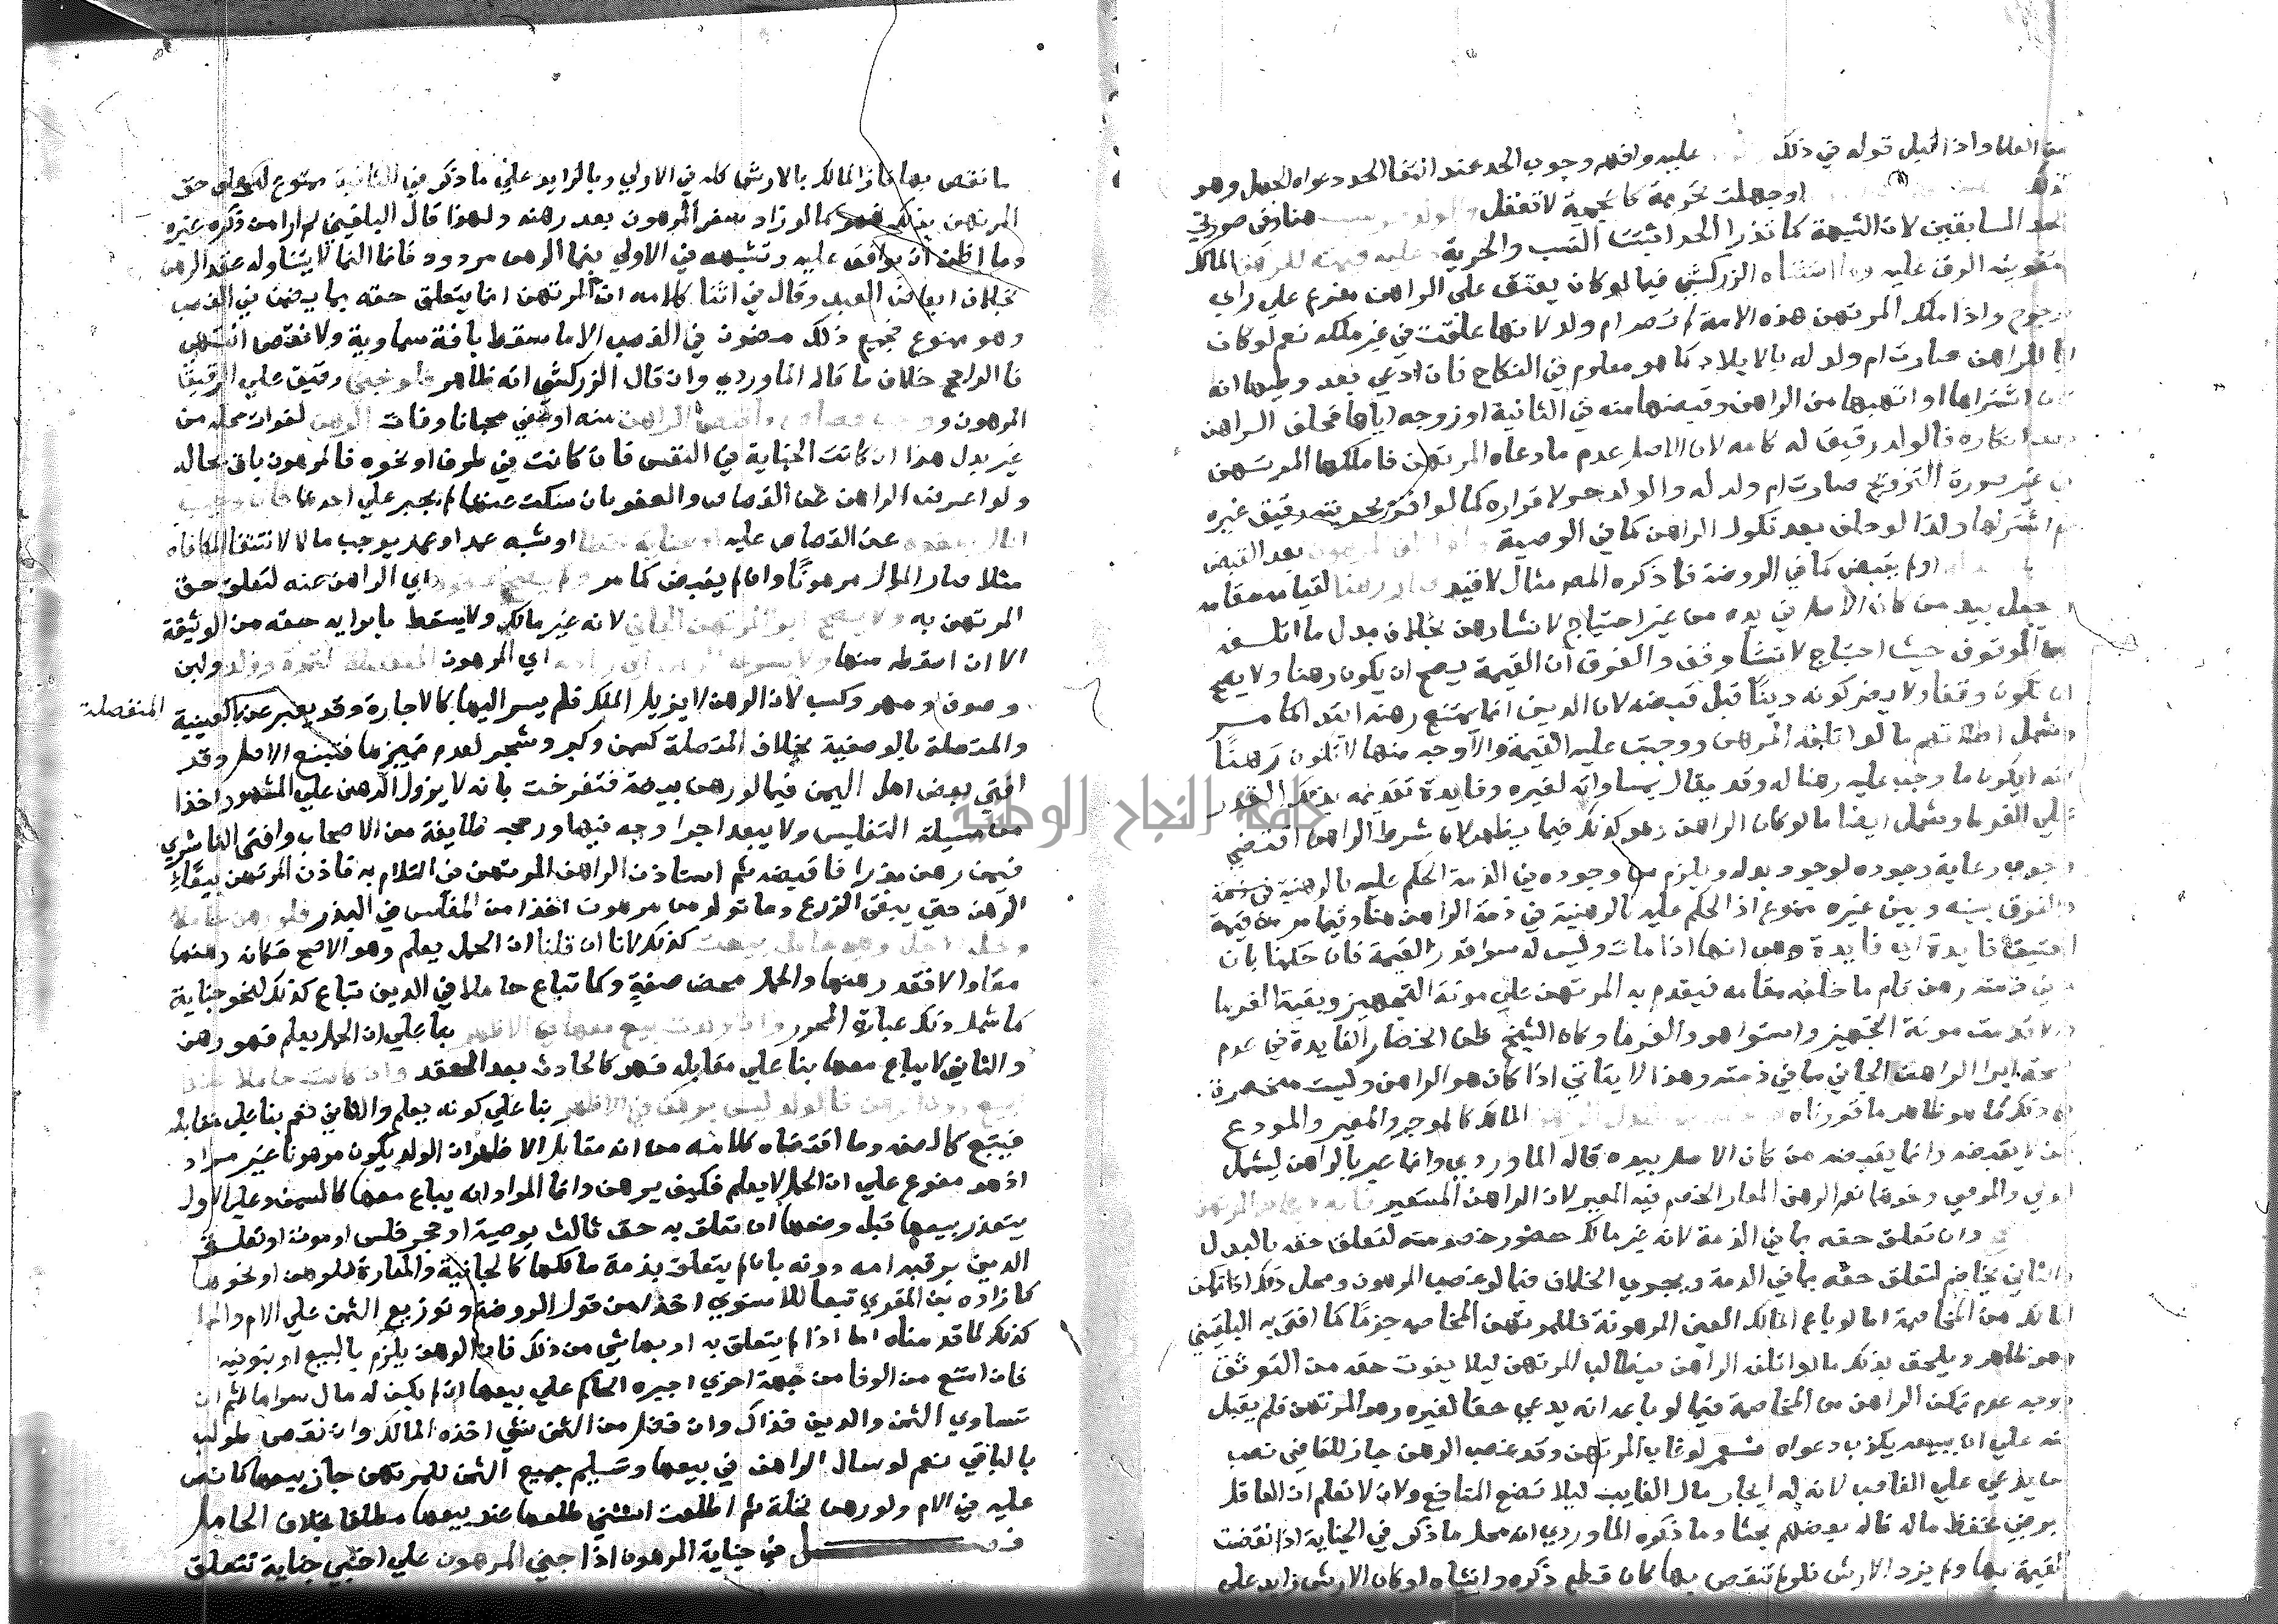 من العلماء واذا قبل قوله في ذلك عليه وافهم وجوب الحد عند انتفا الحد دعواه الجهل وهو
اوجهلت تحريمه كاعجمية لا تعقل هنا وفي صورتي
الحد السابقين لان الشبهة كما تدرا الحد اثبتت النسب والحرية وعليه قيمته للمرهن المالك
لتفويته الرق عليه وما استثناه الزركشي فيما لو كان يعتق على الراهن مفرع علي راي
مرجوح واذا ملك المرتهن هذه الامة لم تصر ام ولد لانها علقت في غير ملكه نعم لو كان
ابا للراهن صارت ام ولد له بالايلاد كما هو معلوم في النكاح فان ادعي بعد وطيها انه
كان اشتراها او اتهبها من الراهن وقبضها منه في الثانية او زوجه اياها فحلف الراهن
بعد انكاره فالولد رقيق له كامه لان الاصل عدم ما دعاه المرتهن فان ملكها المرتهن
في غير صورة التزويج صارت ام ولد له والولد حر لاقراره كما لو اقر بحرية رقيق غيره
ثم اشتراها وكذا لو حلف بعد نكول الراهن كما في الوصية ولو اتلف المرهون بعد القبض
اولم يقبض كما في الروضة فما ذكره المص مثال لا قيد صار رهنا لقيامه مقامه
ويجعل بيد من كان الاصل في يده من غير احتياج لانشا رهن بخلاف بدل ما اتلف
من الموقوف حيث احتاج لانشا وقف والفرق ان القيمة يصح ان يكون رهنا ولا يصح
ان تكون وقفا ولا يضر كونه دينا قبل قبضه لان الدين انما يمتنع رهنه ابتدا كما مر
وشمل اطلاقهم ما لو اتلفه المرهن ووجبت عليه القيمة والاوجه منها لا تكون رهنا
لانه ايكون ما وجب عليه رهنا له وقد يقال بمساواته لغيره وفايدة تقدمه بذلك القدر
علي الغرما وشمل ايضا ما لو كان الراهن وهو كذلك فيما يظهر لان شرط الراهن اقتضي
وجوب رعاية وجوده لوجود بدله ويلزم من وجوده في الذمة الحكم عليه بالرهنية في ذمة
والفرق بينه وبين غيره ممنوع اذ الحكم عليه بالرهنية في ذمة الراهن هنا وفيما مر من قيمة
العتيق فايدة اي فايدة وهي انها اذا مات وليس له سوا قدر القيمة فان حكمنا بان
ما في ذمته رهن قام ما خلفه مقامه فيقدم به المرتهن علي مونة التجهيز وبقية الغرما
والا قدمت مونة التجهيز واستوا هو والغرما وكان الشيخ ظن انحصار الفايدة في عدم
صحة ابرا الراهن الجاني مما في ذمته وهذا لا يتاتي اذا كان هو الراهن وليست منحصرة
في ذلك كما هو ظاهر ما قررناه المالك كالموجر والمعير والمودع
لكن لا يقبضه وانما يقبضه من كان الاصل بيده قاله الماوردي وانما عبر بالراهن ليشمل
الولي والوصي ونحوهما نعم الرهن المعار الخصم فيه المعير لان الراهن المستعير
وان تعلق حقه بما في الذمة لانه غير مالك حضور خصومته لتعلق حقه بالبدل
والثاني يخاصم لتعلق حقه بما في الذمة ويجري الخلاف فيما لو غصب المرهون ومحل ذلك اذا تمكن
المالك من المخاصمة اما لو باع المالك العين المرهونة فللمرتهن المخاصمة جزما كما افتي به البلقيني
وهو ظاهر ويلحق بذلك ما لو اتلفه الراهن فيطالب المرتهن ليلا يفوت حقه من التوثق
ووجه عدم تمكن الراهن من المخاصمة فيما لو باعه انه يدعي حقا لغيره وهو المرتهن فلم يقبل
منه علي ان بيعه يكذب دعواه نعم لو غاب المرتهن وقد غصب الرهن جاز للقاضي نصب
من يدعي علي الغاصب لانه له ايجار مال الغايب ليلا تضيع المنافع ولان لا نعلم ان العاقل
يرضي بحفظ ماله قاله بعضهم بحثا وما ذكره الماوردي ان محل ما ذكر في الجناية اذا نقصت
القيمة بها ولم يزد الارش فلو لم تنقص بها كان قطع ذكره وانثياه او كان الارش زايد علي
ما نقص بها فاز المالك بالارش كله في الاولي وبالزايد علي ما ذكر في الثانية ممنوع لتعلق حق
المرتهن بذلك فهو كما لو زاد سعر المرهون بعد رهنه ولهذا قال البلقيني لم ار من ذكره غيره
وما اظن ان يوافق عليه وتشبيهه في الاولي بنما الرهن مردود فانما النما لا يتناوله عقد الرهن
بخلاف ابعاض العبد وقال في اثنا كلامه ان المرتهن انما يتعلق حقه بما يضمن في الغصب
وهو ممنوع فجميع ذلك مضمون في الغصب الا ما سقط بافة سماوية ولا نقص انتهي
فالراجح خلاف ما قاله الماوردي وان قال الزركشي انه ظاهر فلو جني رقيق علي الرقيق
المرهون ووجب قصاص واقتص الراهن منه او عفي مجانا وفات الرهن لفوات محله من
غير بدل هذا ان كانت الجناية في النفس فان كانت في طرف او نحوه فالمرهون باق بحاله
ولو اعرض الراهن عن القصاص والعفو بان سكت عنهما لم يجبر علي احدهما فان وجب
المال بعفوه عن القصاص عليه او جناية خطا او شبه عمد او عمد يوجب مالا لانتفا المكافاة
مثلا صار المال مرهونا وان لم يقبض كما مر ولم يصح عفوه اي الراهن عنه لتعلق حق
المرتهن به ولا يصح ابرا المرتهن الجاني لانه غير مالك ولا يسقط بابرايه حقه من الوثيقة
الا ان اسقطه منها ولا يسري الرهن الى زيادته اي المرهون المنفصلة كثمرة وولد ولبن
وصوف ومهر وكسب لان الرهن لا يزيل الملك فلم يسر اليها كالاجارة وقد يعبر عن بالعينية المنفصلة
والمتصلة بالوصفية بخلاف المتصلة كسمن وكبر وشجر لعدم تميزها فتتبع الاصل وقد
افتي بعض اهل اليمن فيما لو رهن بيضة فتفرخت بانه لا يزول الرهن علي المشهور اخذا
من مسيلة التفليس ولا يبعد اجرا وجه فيها ورجحه طايفة من الاصحاب وافتى الناشري
فيمن رهن بذرا فاقبضه ثم استاذن الراهن المرتهن في التلام به فاذن المرتهن ببقاء
الرهن حتي يبقي الزرع وما تولد من مرهون اخذا من المفلس في البذر فلو رهن حاملا
وحل الاجل وهي حامل بيعت كذلك لانا ان قلنا ان الحمل يعلم وهو الاصح فكانه رهنهما
معا والا فقد رهنها والحمل محض صفة وكما تباع حاملا في الدين تباع كذلك لنحو جناية
كما شمل ذلك عبارة المحرر وان ولدت بيع معها في الاظهر بنا علي ان الحمل يعلم فهو رهن
والثاني لا يباع معها بنا علي مقابله فهو كالحادث بعد العقد وان كانت حاملا عند
البيع دون الرهن فالولد ليس برهن في الاظهر بنا علي كونه يعلم والثاني نعم بنا علي مقابله
فيتبع كالصفة وما اقتضاه كلامه من ان مقابل الاظهر ان الولد يكون مرهونا غير مراد
اذ هو مفرع علي ان الحمل لا يعلم فكيف يرهن وانما المراد انه يباع معها كالسمن وعلي الاول
يتعذر بيعها قبل وضعها ان تعلق به حق ثالث بوصية او حجر فلس او موت او تعلق
الدين برقبة امه دونه بان لم يتعلق بذمة مالكها كالجانية والمعارة للرهن او نحوها
كما زاده بن المقري تبعا للاسنوي اخذا من قول الروضة وتوزيع الثمن علي الام والحمل
كذلك لما قدمناه اما اذا لم يتعلق به او بها شي من ذلك فان الراهن يلزم بالبيع او بتوفيته
فان امتنع من الوفا من جهة اخري اجبره الحاكم علي بيعها ان لم يكن له مال سواها ثم ان
تساوي الثمن والدين فذاك وان فضل من الثمن شي اخذه المالك وان نقص طولب
بالباقي نعم لو سال الراهن في بيعها وتسليم جميع الثمن للمرتهن جاز بيعها كما نص
عليه في الام ولو رهن نخلة ثم اطلعت استثني طلعها عند بيعها مطلقا بخلاف الحامل
فصل في جناية المرهون اذا جني المرهون علي اجنبي جناية تتعلق
جامعة النجاح الوطنية